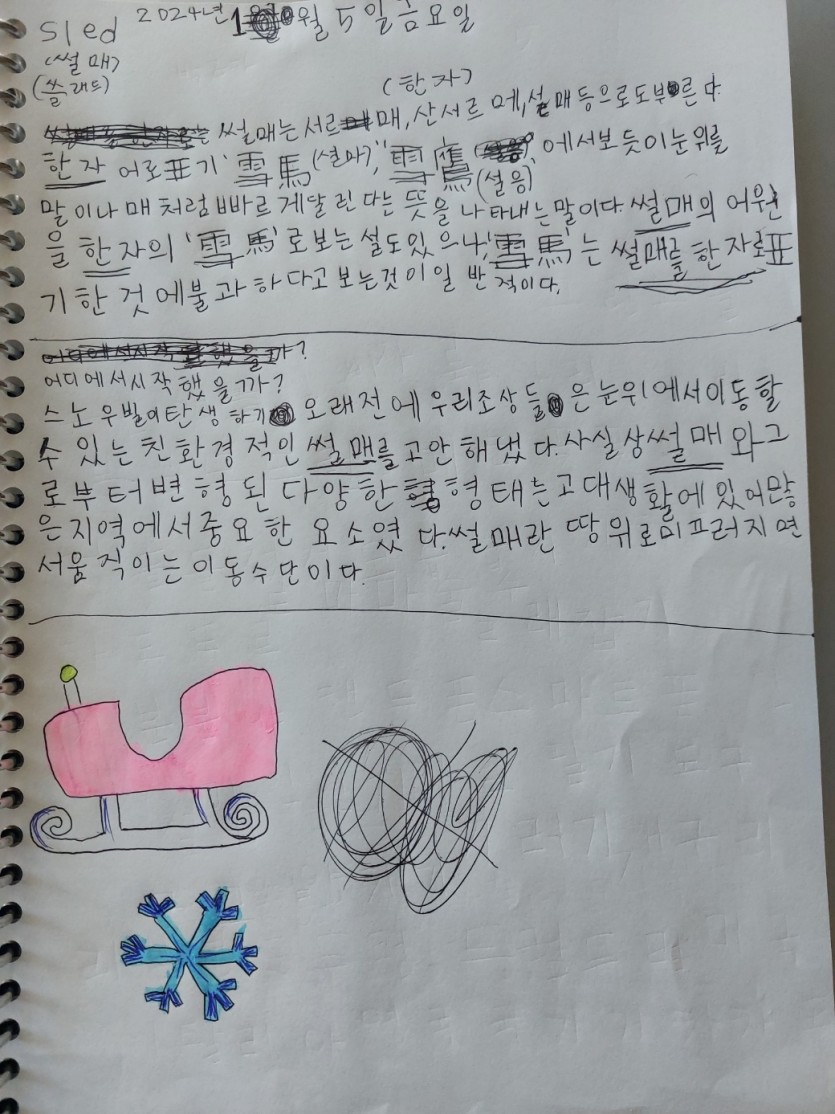 sled 2024년 1월 5일 금요일
(썰매)
(쓸래드)
(한자)
썰매는 서르매, 산서르 메, 설매 등으로도 부른다.
한자 어로 표기 '雪馬(설마)', '雪鷹(설응)'에서 보듯이 눈 위를
말이나 매 처럼 빠르게 달린다는 뜻을 나타내는 말이다. 썰매의 어원
을 한자의 '雪馬'로 보는 설도 있으나, '雪馬'는 썰매를 한자로 표
기한 것에 불과하다고 보는것이 일반적이다.
어디에서 시작했을까?
스노우빌이 탄생하기 오래전에 우리조상들은 눈위에서 이동할
수 있는 친환경적인 썰매를 고안해냈다. 사실상 썰매와 그
로부터 변형된 다양한 형태는 고대생활에 있어 많
은 지역에서 중요한 요소였다. 썰매란 땅위로 미끄러지면
서 움직이는 이동수단이다.